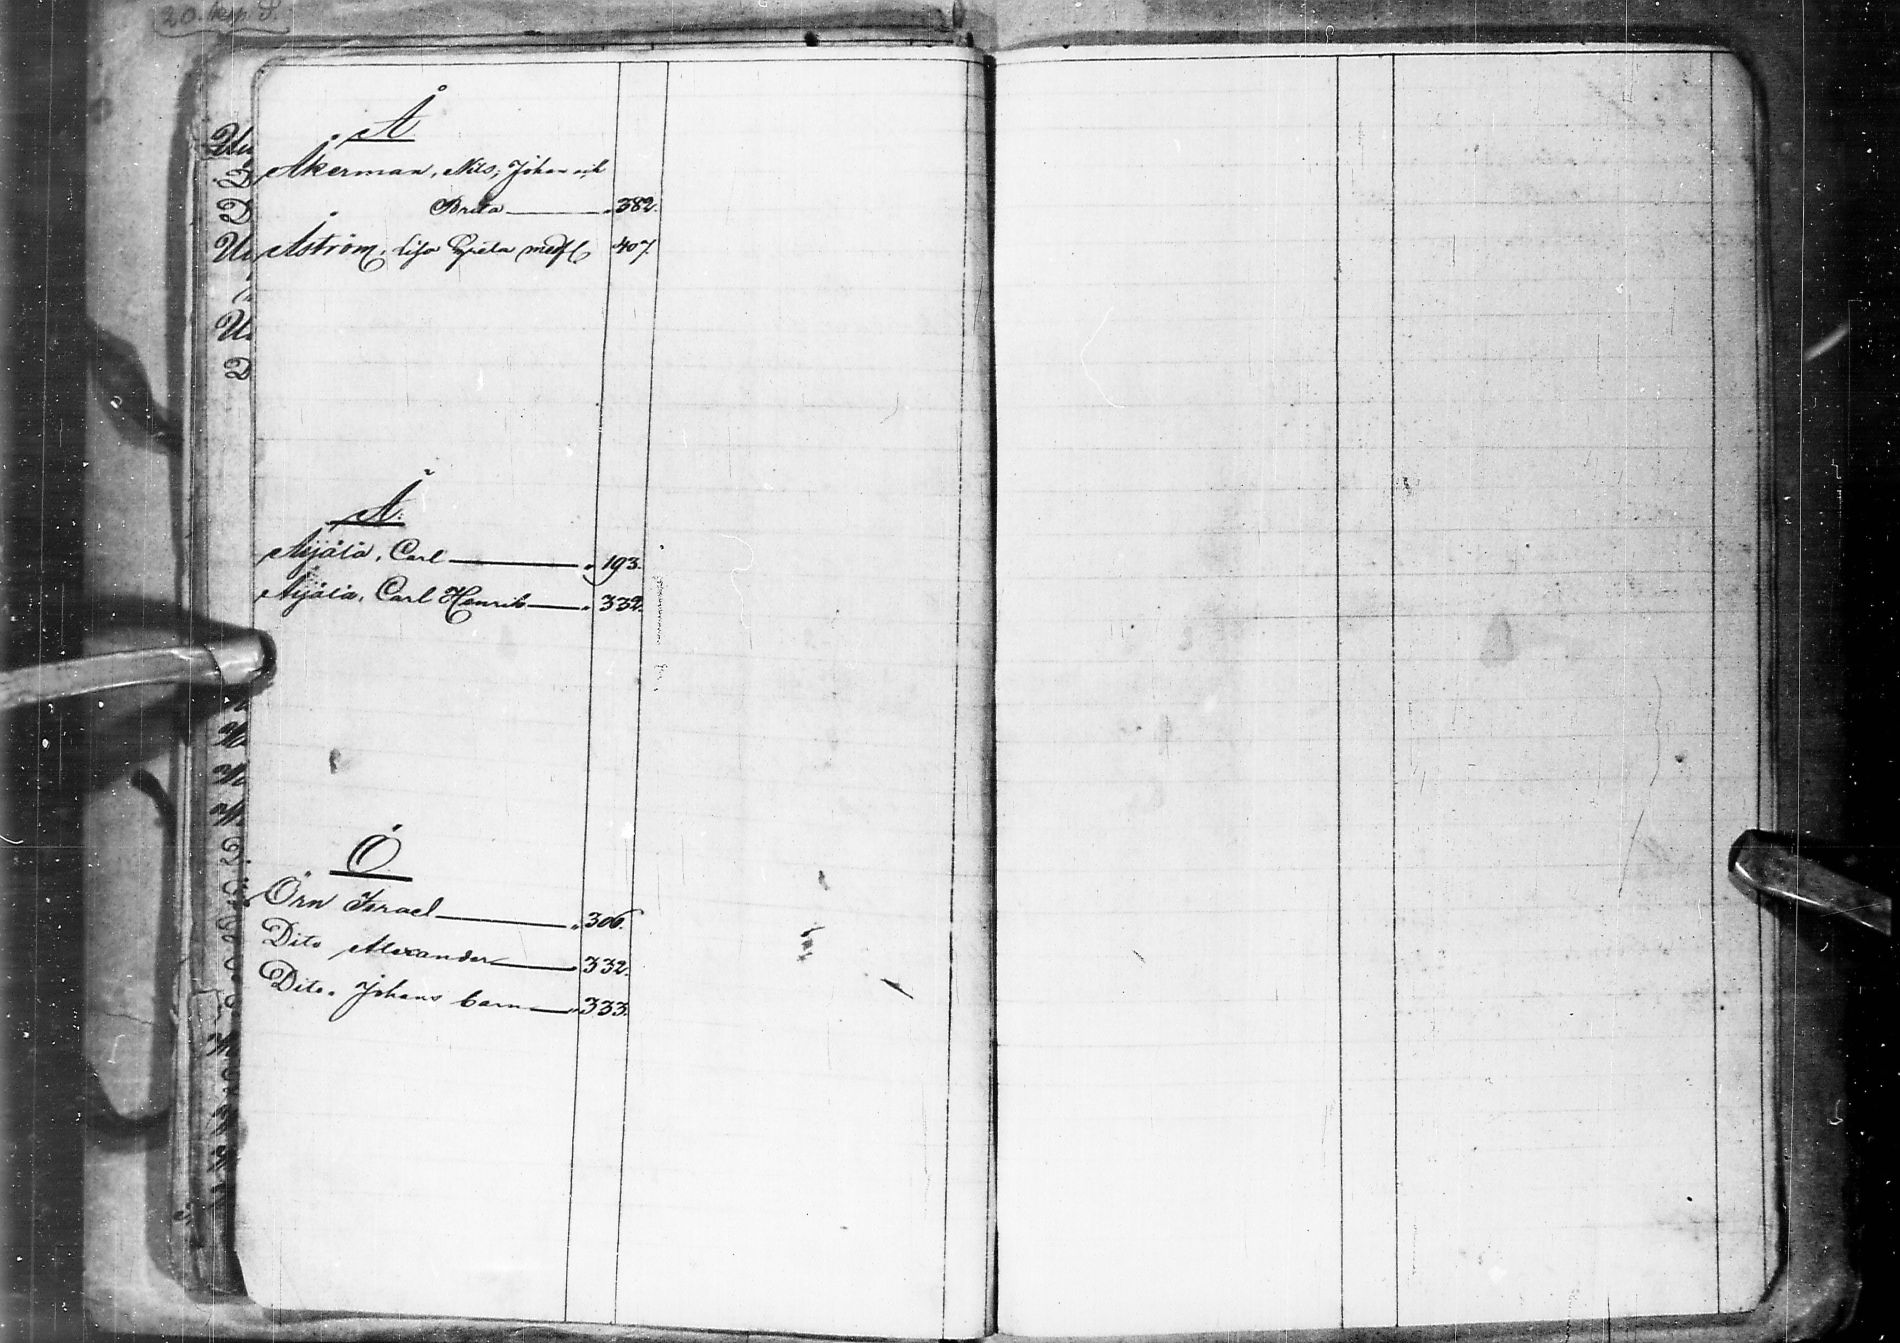 Å
Åkerman, Nils, Johan och
Brita — 382.
Åström, Lisa Greta med fl 407.
Ä.
Äijälä, Carl — 193.
Äijälä, Carl Henrik — 332.
Ö
Örn Israel — 306.
Dito Alexander — 332.
Dito. Johans barn — 333.